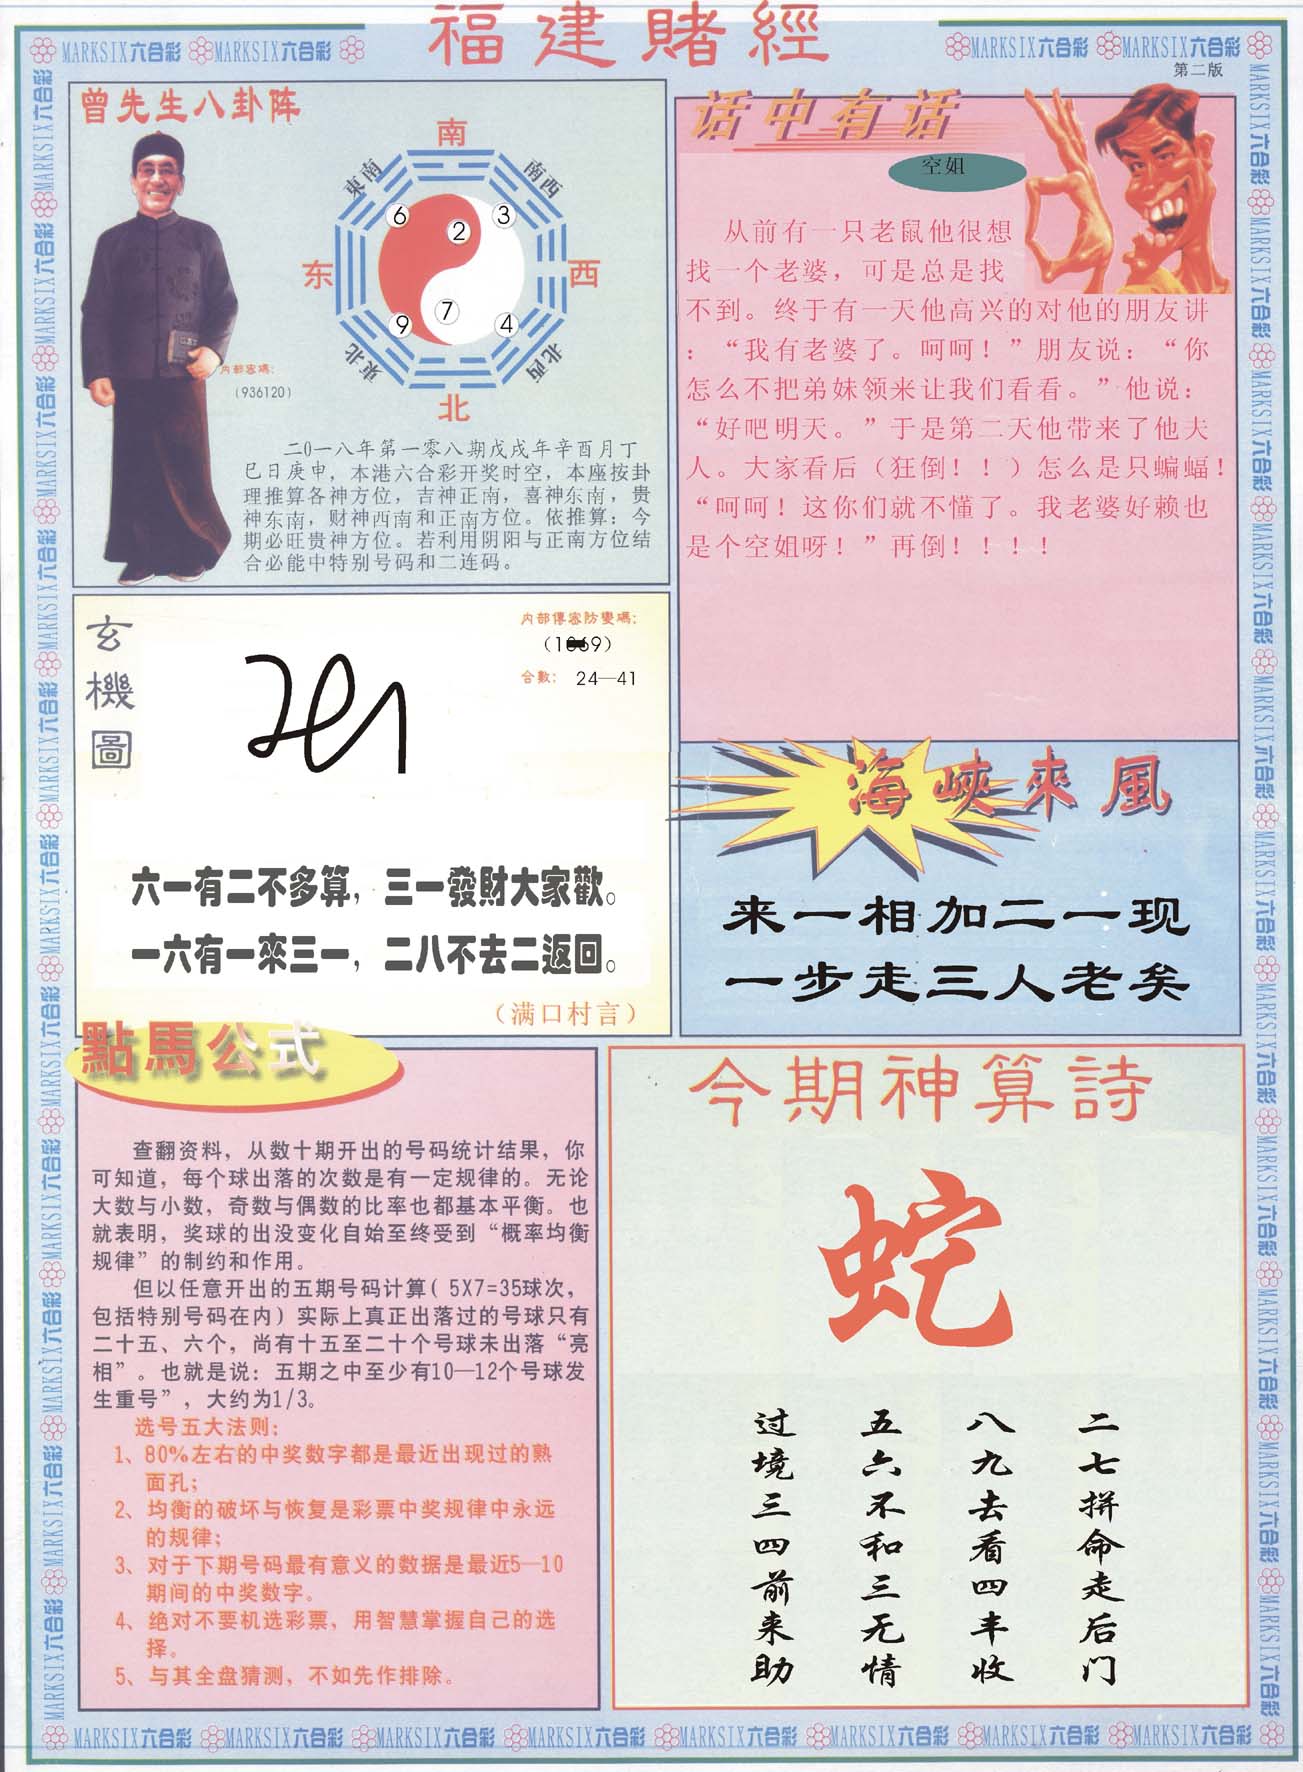 福建賭經
MARKSIX六合彩 MARKSIX六合彩
MARKSIX六合彩 MARKSIX六合彩
第二版
曾先生八卦阵
南
東南
南西
6
3
2
东
西
7
9
4
東北
北西
北
内部密碼：
（936120）
二0一八年第一零八期戊戌年辛酉月丁
巳日庚申，本港六合彩开奖时空，本座按卦
理推算各神方位，吉神正南，喜神东南，贵
神东南，财神西南和正南方位。依推算：今
期必旺贵神方位。若利用阴阳与正南方位结
合必能中特别号码和二连码。
话中有话
空姐
从前有一只老鼠他很想
找一个老婆，可是总是找
不到。终于有一天他高兴的对他的朋友讲
：“我有老婆了。呵呵！”朋友说：“你
怎么不把弟妹领来让我们看看。”他说：
“好吧明天。”于是第二天他带来了他夫
人。大家看后（狂倒！！）怎么是只蝙蝠！
“呵呵！这你们就不懂了。我老婆好赖也
是个空姐呀！”再倒！！！！
玄機圖
内部傳密防變碼：
合數： 24—41
六一有二不多算，三一發財大家歡。
一六有一來三一，二八不去二返回。
（满口村言）
海峽來風
来一相加二一现
一步走三人老矣
點馬公式
查翻资料，从数十期开出的号码统计结果，你
可知道，每个球出落的次数是有一定规律的。无论
大数与小数，奇数与偶数的比率也都基本平衡。也
就表明，奖球的出没变化自始至终受到“概率均衡
规律”的制约和作用。
但以任意开出的五期号码计算（5X7=35球次，
包括特别号码在内）实际上真正出落过的号球只有
二十五、六个，尚有十五至二十个号球未出落“亮
相”。也就是说：五期之中至少有10—12个号球发
生重号”，大约为1/3。
选号五大法则：
1、80%左右的中奖数字都是最近出现过的熟
面孔；
2、均衡的破坏与恢复是彩票中奖规律中永远
的规律；
3、对于下期号码最有意义的数据是最近5—10
期间的中奖数字。
4、绝对不要机选彩票，用智慧掌握自己的选
择。
5、与其全盘猜测，不如先作排除。
今期神算詩
蛇
二七拼命走后门
八九去看四丰收
五六不和三无情
过境三四前来助
MARKSIX六合彩 MARKSIX六合彩 MARKSIX六合彩 MARKSIX六合彩 MARKSIX六合彩 MARKSIX六合彩 MARKSIX六合彩 MARKSIX六合彩